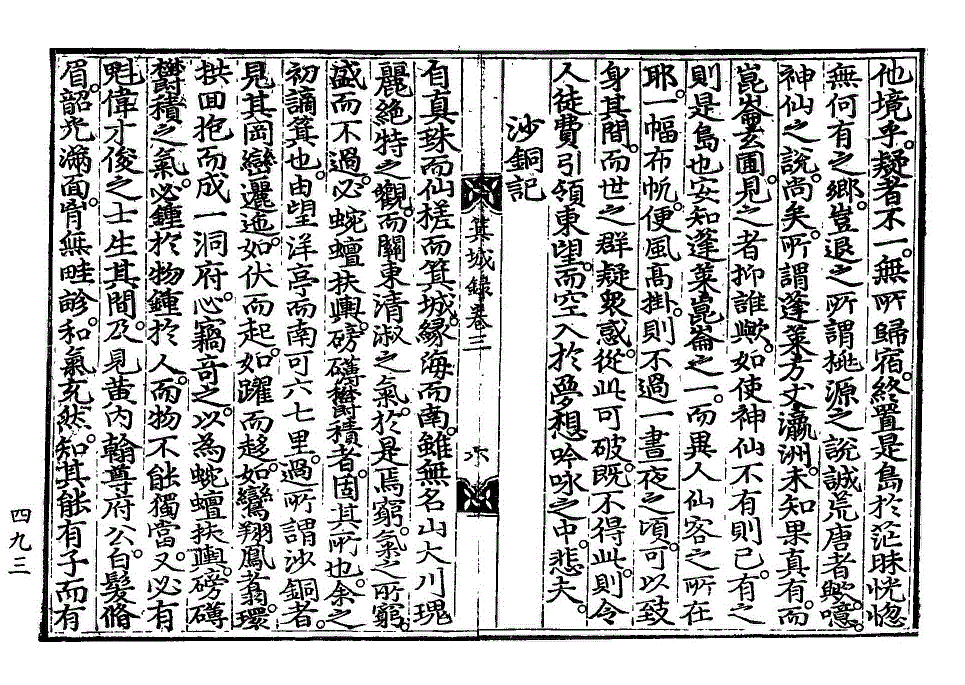 他境乎。疑者不一。無所歸宿。終置是島於茫昧恍惚
無何有之鄕。豈退之所謂桃源之說誠荒唐者歟。噫。
神仙之說。尙矣。所謂蓬萊,方丈,瀛洲。未知果眞有。而
崑崙,玄圃。見之者抑誰歟。如使神仙不有則已。有之
則是島也安知蓬萊崑崙之一。而異人仙客之所在
耶。一幅布帆。便風高掛。則不過一晝夜之頃。可以致
身其間。而世之群疑衆惑。從此可破。旣不得此。則令
人徒費引領東望。而空入於夢想吟咏之中。悲夫。
沙銅記
箕城錄卷三
六
自眞珠而仙槎而箕城。緣海而南。雖無名山大川瑰
麗絶特之觀。而關東淸淑之氣。於是焉窮。氣之所窮。
盛而不過。必蜿蟺扶輿。磅礴欝積者。固其所也。余之
初謫箕也。由望洋亭而南可六七里。過所謂沙銅者。
見其岡巒邐迤。如伏而起。如躍而趍。如鸞翔鳳翥。環
拱回抱而成一洞府。心竊奇之。以爲蜿蟺扶輿。磅礴
欝積之氣。必鍾於物鍾於人。而物不能獨當。又必有
魁偉才俊之士生其間。及見黃內翰尊府公。白髮脩
眉。韶光滿面。胷無畦畛。和氣充然。知其能有子而有
四九三